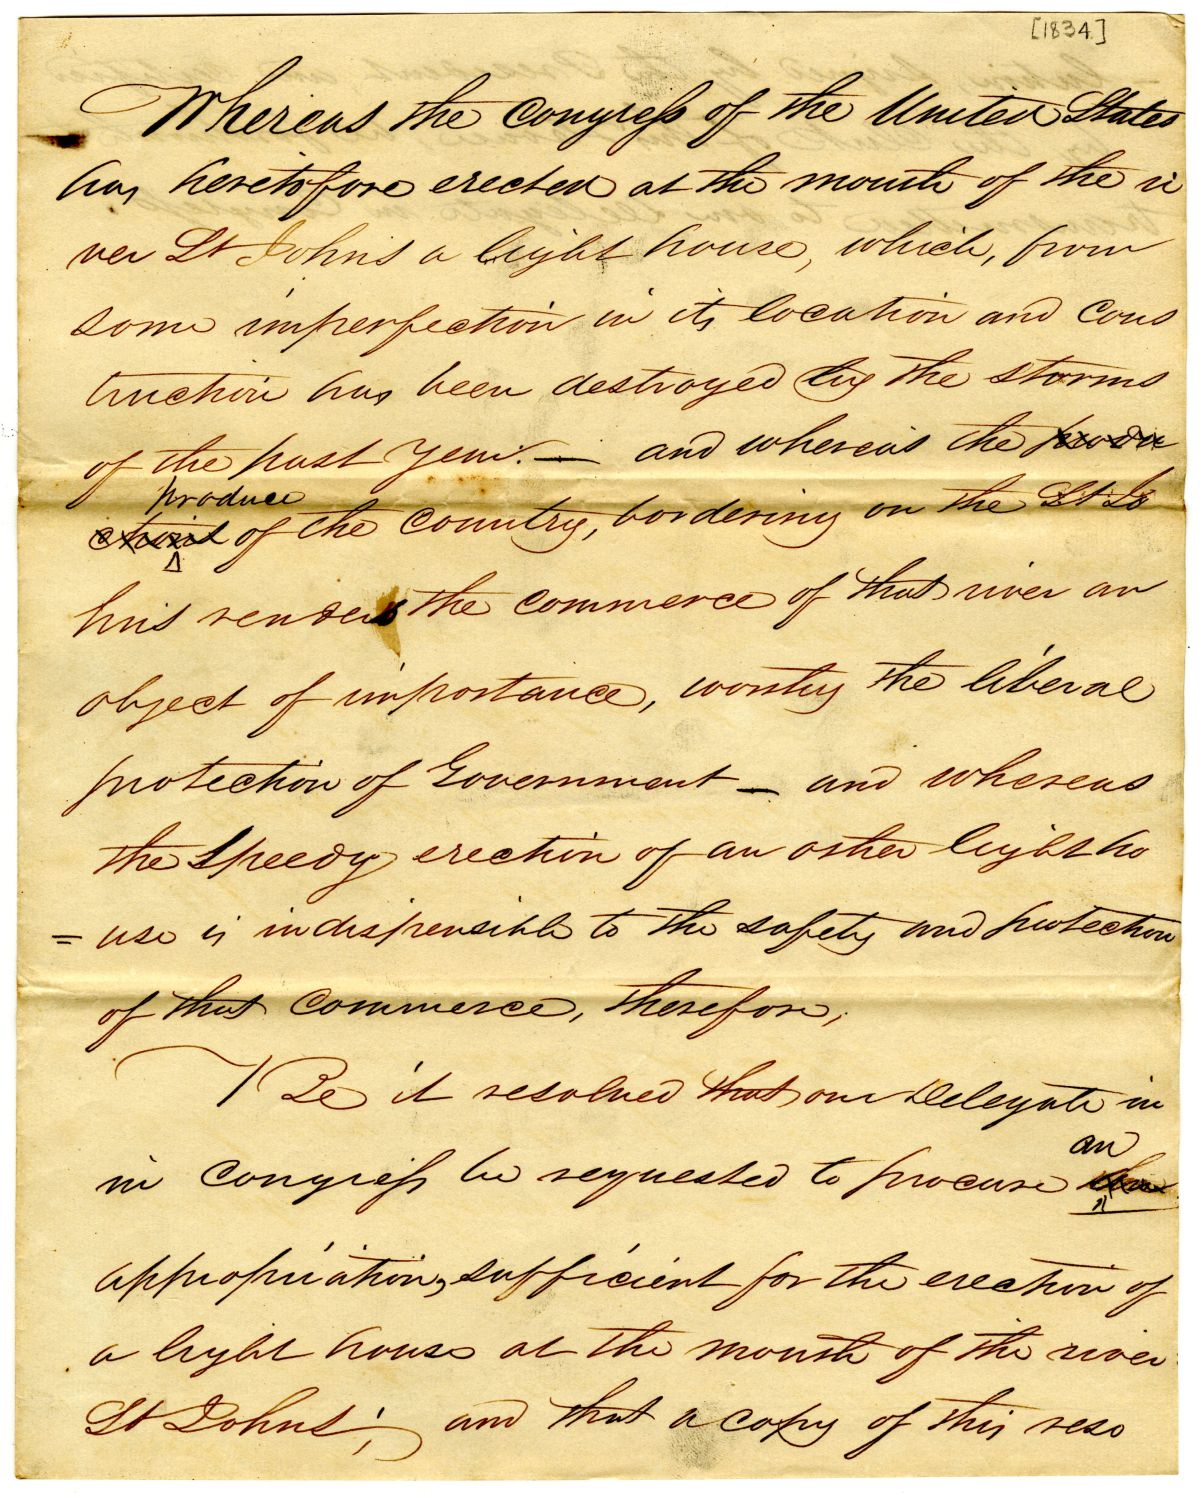 [1834]
Whereas the Congress of the United States
has heretofore erected at the mouth of the ri
ver St Johns a light house, which, from
some imperfection in its location and cons
truction has been destroyed by the storms
of the past year. — and whereas the produ
produce
ctions of the Country, bordering on the St Jo
hns renders the commerce of that river an
object of importance, worthy the liberal
protection of Government — and whereas
the speedy erection of an other light ho
= use is indispensible to the safety and protection
of that Commerce, therefore,
Be it resolved that our Delegate in
an
in Congress be requested to procure
appropriation, sufficient for the erection of
a light house at the mouth of the river
St Johns; and that a copy of this reso